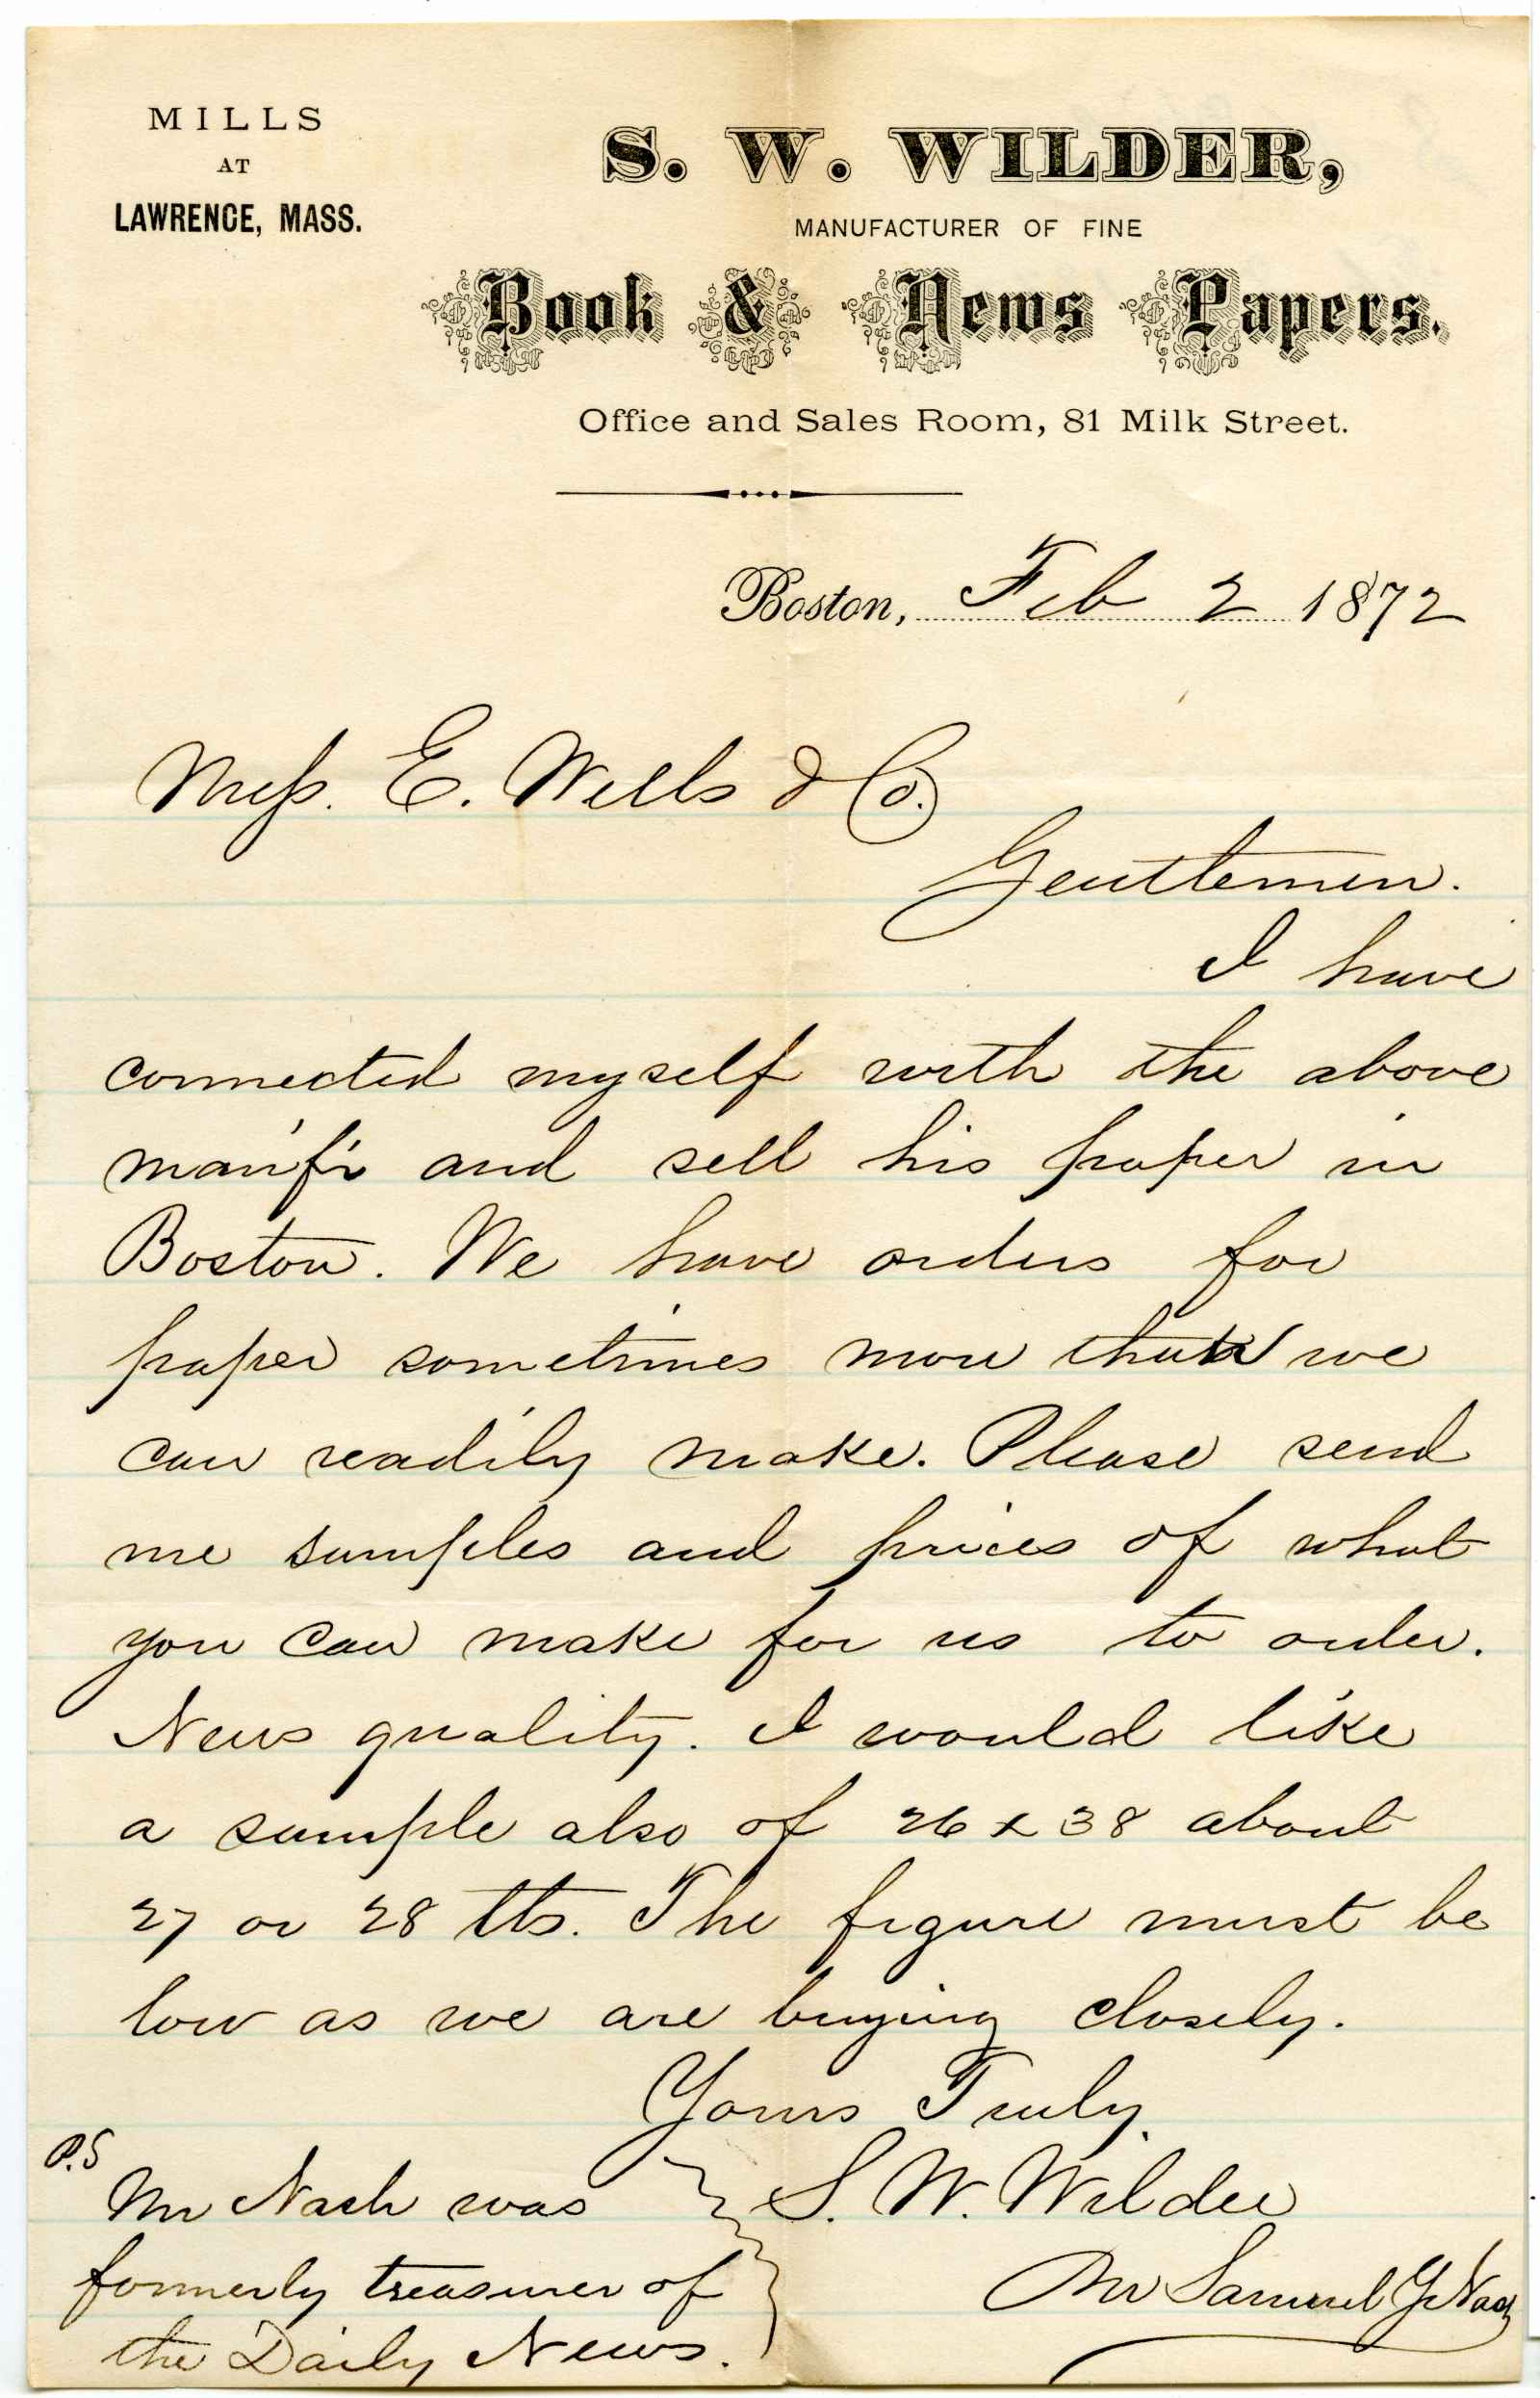 MILLS
AT
LAWRENCE, MASS.
S. W. WILDER,
MANUFACTURER OF FINE
Book & News Papers.
Office and Sales Room, 81 Milk Street.
Boston, Feb 2 1872
Mess. E. Wells & Co.
Gentlemen.
I have
connected myself with the above
man'f'r and sell his paper in
Boston. We have orders for
paper sometimes more than we
can readily make. Please send
me samples and prices of what
you can make for us to order.
News quality. I would like
a sample also of 26 x 38 about
27 or 28 lbs. The figure must be
low as we are buying closely.
Yours Truly.
S. W. Wilder
Samuel G Nash
P.S
Mr Nash was
formerly treasurer of
the Daily News.